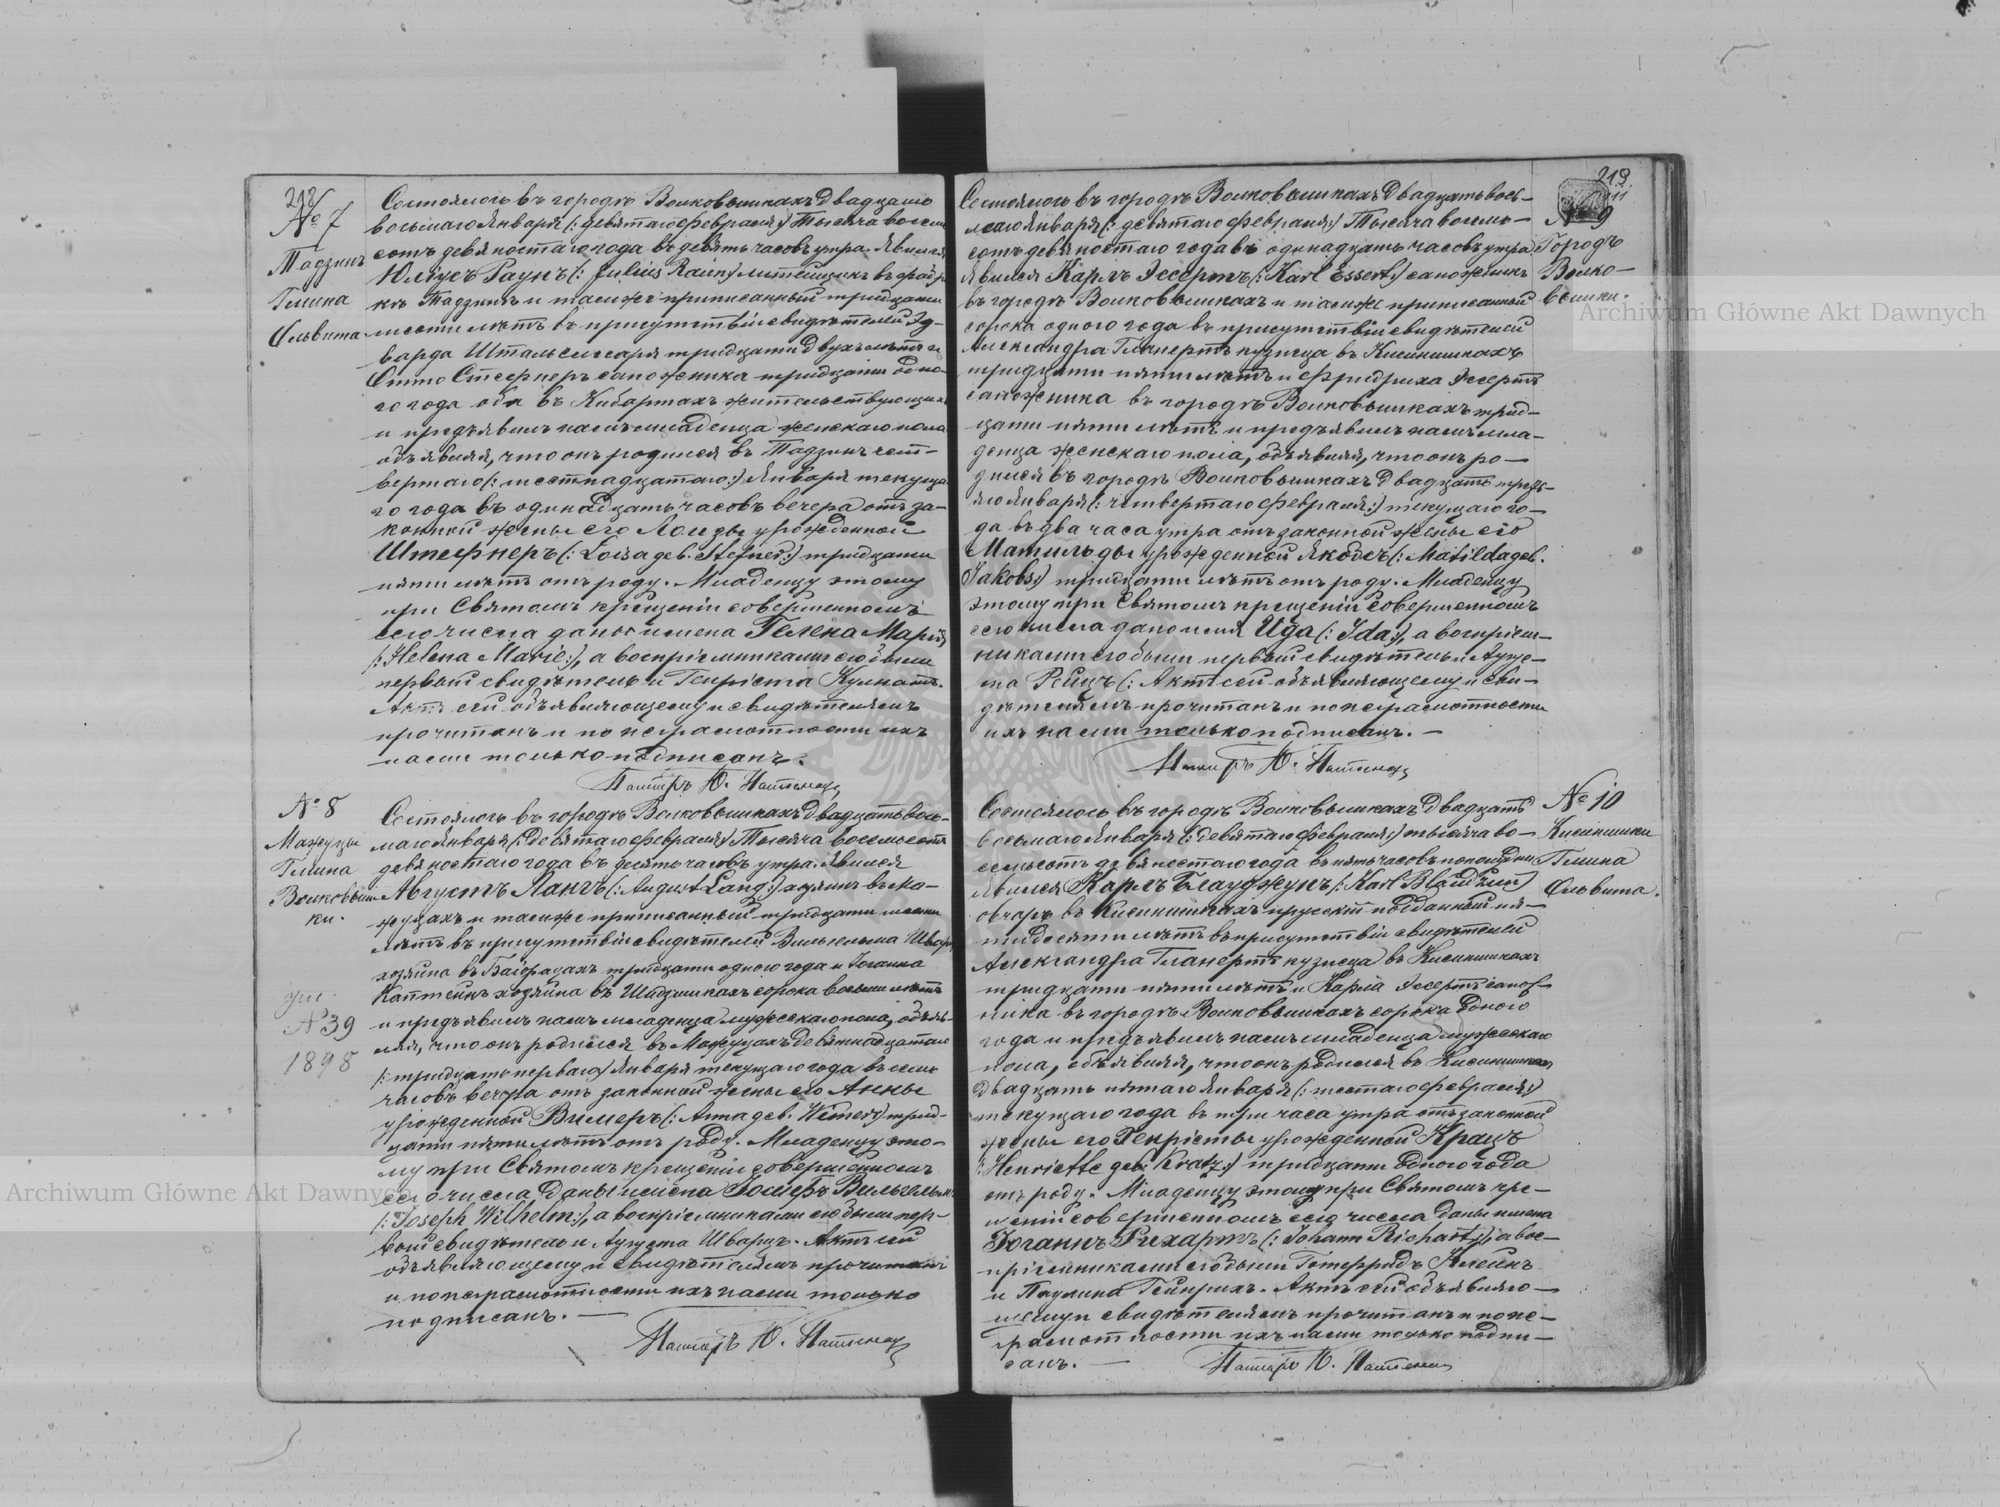 212
№ 7
Тадзинъ
Гмина
Ольвита
Состоялось въ городѣ Волковышкахъ двадцать
восьмаго Января (: девятаго февраля:) тысяча восемь
сотъ девяностаго года въ девять часовъ утра. Явился
Юліусъ Раунъ (: Julius Raun:) литейщикъ въ фабри
кѣ Тадзинъ и также приписанный тридцати
шести лѣтъ въ присутствіи свидѣтелей Эд-
варда Штальсмгаря тридцати двухъ лѣтъ и
Отто Стефнеръ сапожника тридцати одно-
го года оба въ Кибартахъ жительствующихъ
и предъявилъ намъ младенца женскаго пола
объявляя, что онъ родился въ Тадзинъ чет-
вертаго (: шестнадцатаго:) Января текуща
го года въ одинадцать часовъ вечера отъ за-
конной жены его Лоизы урожденной
Штефнеръ (: Loisa geb. Stefner:) тридцати
пяти лѣтъ отъ роду. Младенцу этому
при Святомъ крещеніи совершенномъ
сего числа даны имена Гелена Марія
(: Helena Marie:), а воспріемниками его были
первый свидѣтель и Генріета Кумпатъ.
Актъ сей объявляющему и свидѣтелямъ
прочитанъ и по неграмотности ихъ
нами только подписанъ.
Пасторъ Ю.
№ 8
Мажуцы
Гмина
Волковыш
ки.
№ 39
1898
Состоялось въ городѣ Волковышкахъ двадцать вось-
маго Января (: девятаго февраля:) тысяча восемьсотъ
девяностаго года въ десять часовъ утра. Явился
Августъ Лангъ (: August Lang:) хозяинъ въ Ма-
жуцахъ и также приписанный тридцати шести
лѣтъ въ присутствіи свидѣтелей Вильгельма Шварц
хозяина въ тридцати одного года и Іоганна
Каптейнъ хозяина въ сорока восьми лѣтъ
и предъявилъ намъ младенца мужескаго пола, объяв-
ляя, что онъ родился въ Мажуцахъ девятнадцатаго
(: тридцать перваго:) Января текущаго года въ семь
часовъ вечера отъ законной жены его Анны
урожденной Вимеръ (: Anna geb. Wimer:) трид-
цати пяти лѣтъ отъ роду. Младенцу это-
му при Святомъ крещеніи совершенномъ
сего числа даны имена Іосифъ Вильгельмъ
(: Joseph Wilhelm:), а воспріемниками его были пер-
вый свидѣтель и Августа Шварцъ. Актъ сей
объявляющему и свидѣтелямъ прочитанъ
и по неграмотности ихъ нами только
подписанъ. —
Пасторъ Ю.
213
№ 9
Городъ
Волко-
вышки.
Состоялось въ городѣ Волковышкахъ двадцать вось-
маго Января (: девятаго февраля:) тысяча восемь-
сотъ девяностаго года въ одинадцать часовъ утра.
Явился Карлъ Эссертъ (: Karl Essert:) сапожникъ
въ городѣ Волковышкахъ и также приписанный
сорока одного года въ присутствіи свидѣтелей
Александра Гланертъ кузнеца въ Кисинишкахъ
тридцати пяти лѣтъ и Фридриха Эссертъ
сапожника въ городѣ Волковышкахъ трид-
цати пяти лѣтъ и предъявилъ намъ мла-
денца женскаго пола, объявляя, что онъ ро-
дился въ городѣ Волковышкахъ двадцать третья-
го Января (: четвертаго февраля:) текущаго го-
да въ два часа утра отъ законной жены его
Матильды урожденной Якобсъ (: Matilda geb.
Jakobs:) тридцати лѣтъ отъ роду. Младенцу
этому при Святомъ крещеніи совершенномъ
сего числа дано имя Ида (: Ida:), а воспріем-
никами его были первый свидѣтель и Авгус-
та Рейцъ (: Актъ сей объявляющему и сви-
дѣтелямъ прочитанъ и по неграмотности
ихъ нами только подписанъ. —
Пасторъ Ю.
№ 10
Кисинишки
Гмина
Ольвита.
Состоялось въ городѣ Волковышкахъ двадцать
восьмаго Января (: девятаго февраля:) тысяча во-
семьсотъ девяностаго года въ пять часовъ пополудни
явился Карлъ Блауджунъ (: Karl Blaudzun:)
овчаръ въ Кисинишкахъ прусскій подданный пя-
тидесяти лѣтъ въ присутствіи свидѣтелей
Александра Гланертъ кузнеца въ Кисинишкахъ
тридцати пяти лѣтъ и Карла Эссертъ сапож-
ника въ городѣ Волковышкахъ сорока одного
года и предъявилъ намъ младенца мужескаго
пола, объявляя, что онъ родился въ Кисинишкахъ
двадцать пятаго Января (: шестаго февраля:)
текущаго года въ три часа утра отъ законной
жены его Генріеты урожденной Крацъ
(: Henriette geb. Kratz:) тридцати одного года
отъ роду. Младенцу этому при Святомъ кре-
щеніи совершенномъ сего числа даны имена
Іоганнъ Рихартъ (: Johann Richart:), а вос-
пріемниками его были Готфридъ Клейнъ
и Паулина Гейнрихъ. Актъ сей объявляю-
щему и свидѣтелямъ прочитанъ и по не-
грамотности ихъ нами только подпи-
санъ. —
Пасторъ Ю.
Archiwum Główne Akt Dawnych
Archiwum Główne Akt Dawnych